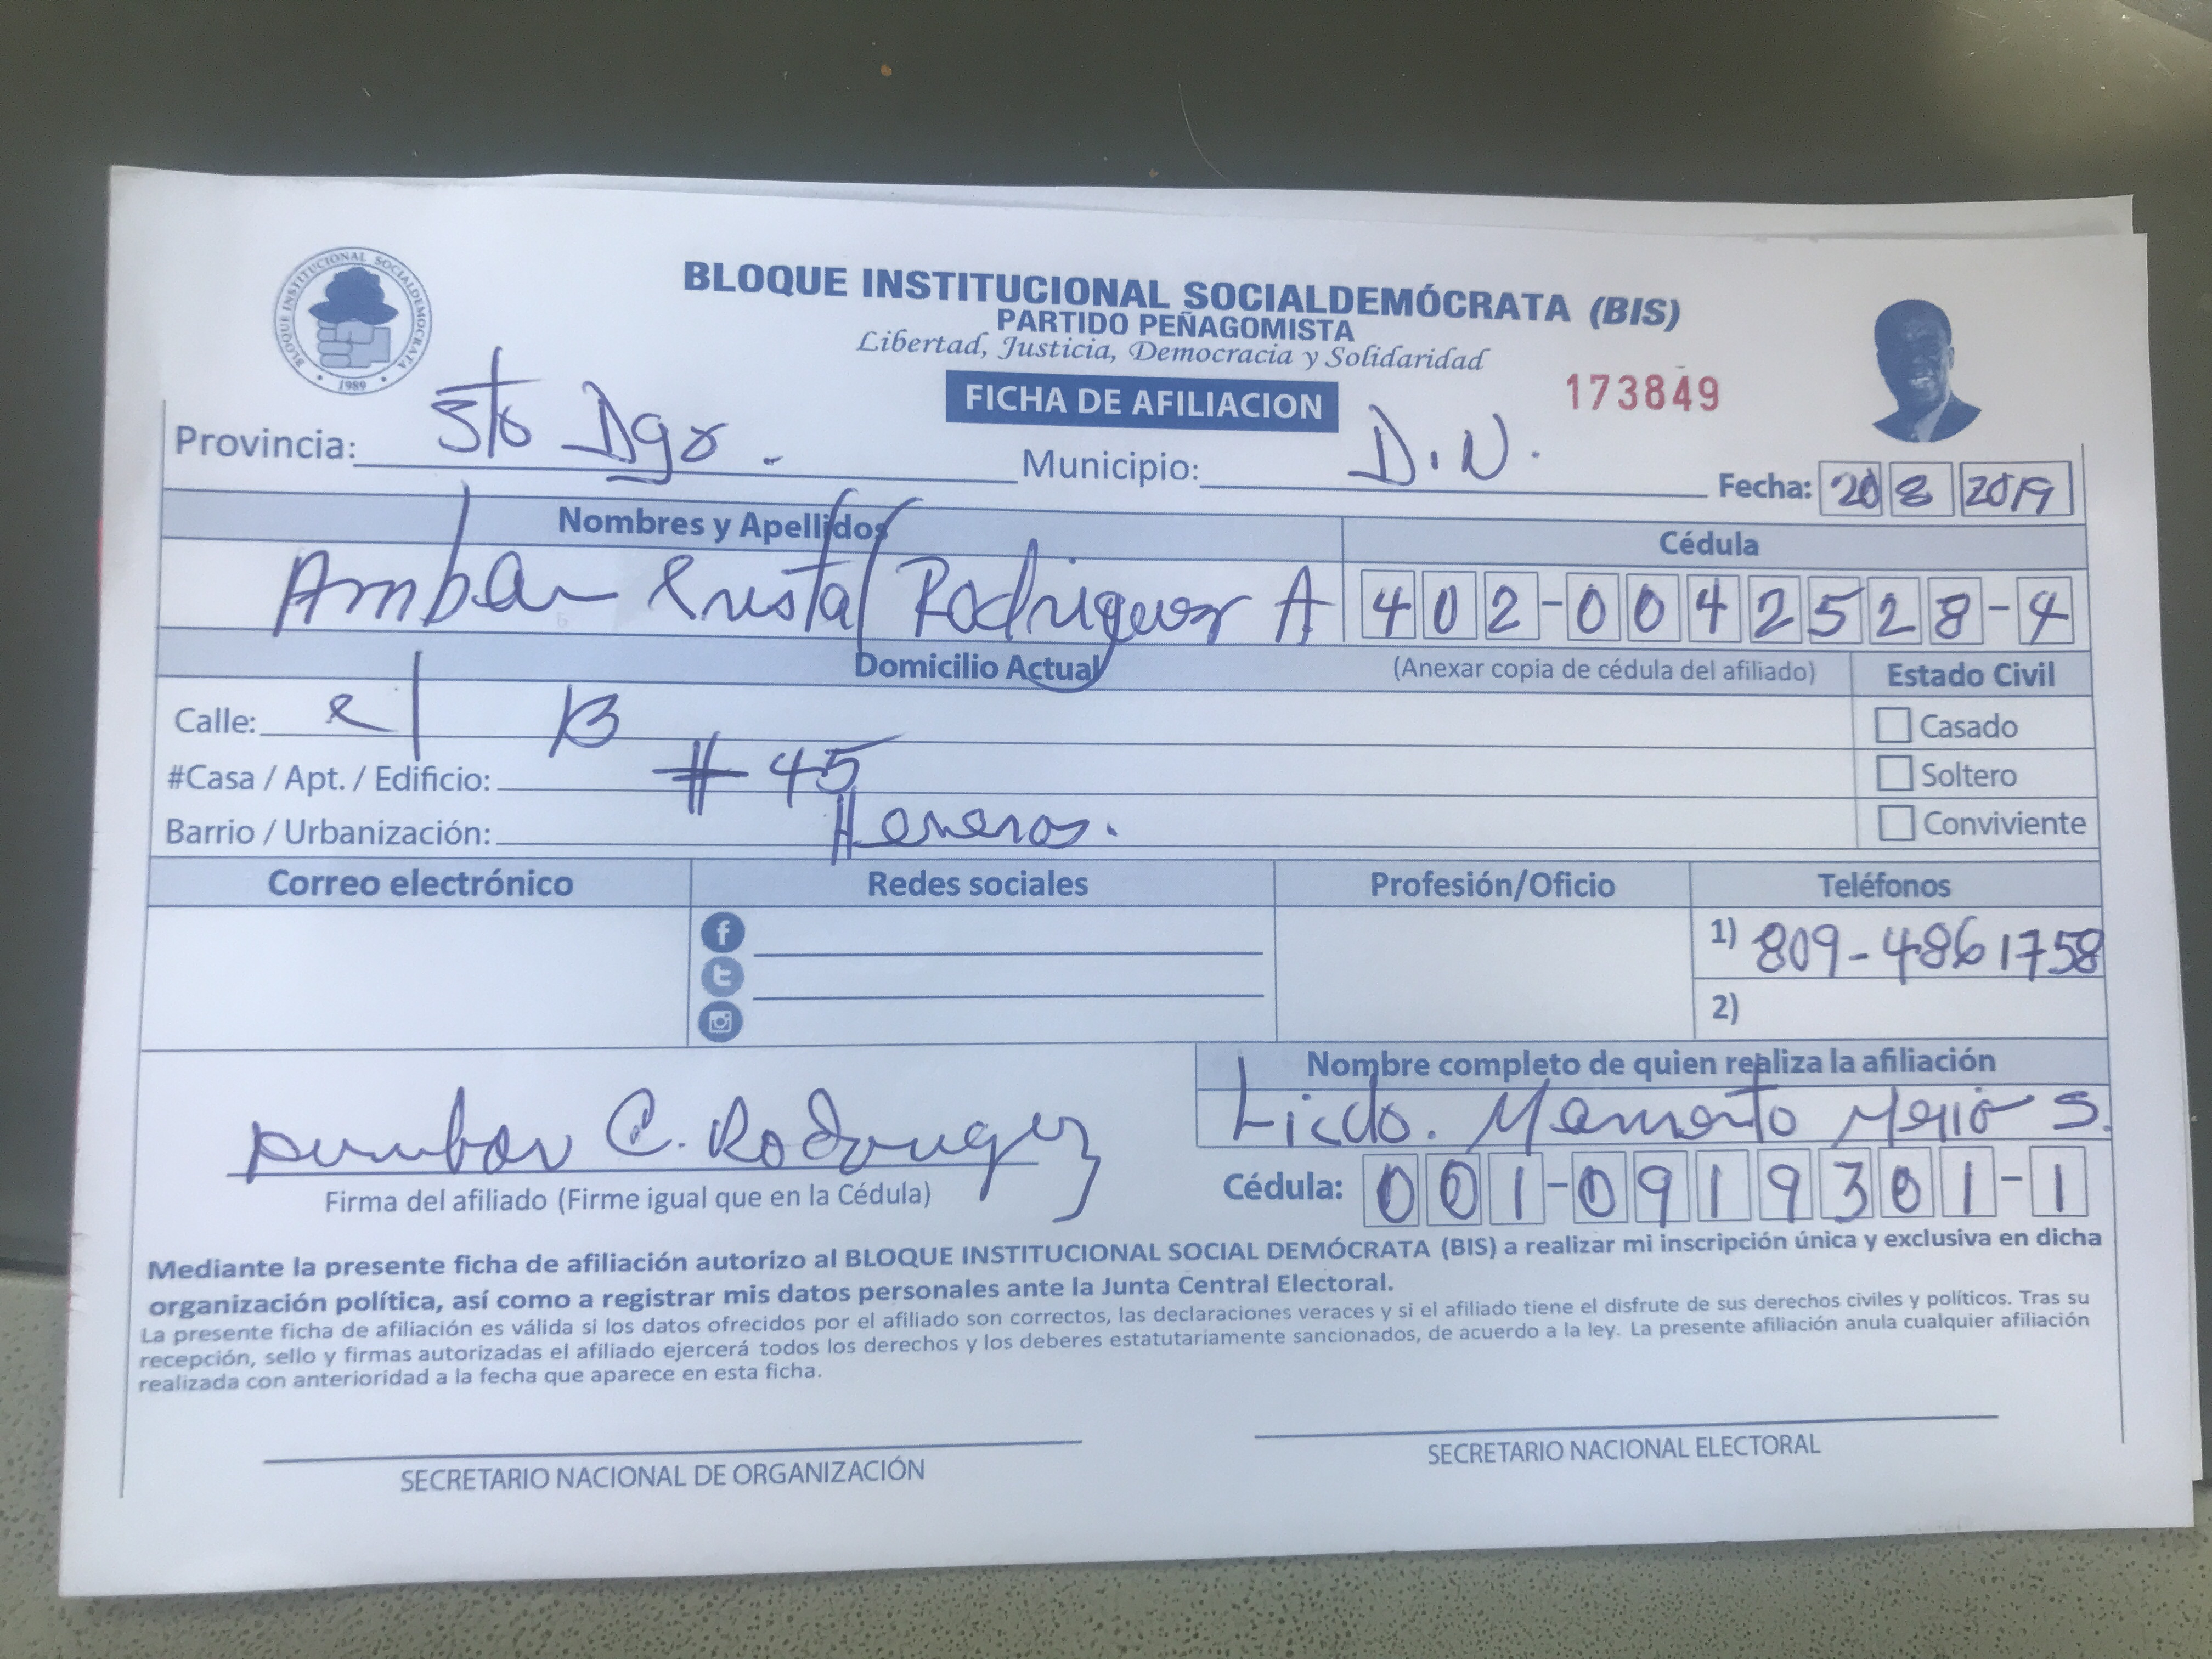 BLOQUE INSTITUCIONAL SOCIALDEMÓCRATA
1989
BLOQUE INSTITUCIONAL SOCIALDEMÓCRATA (BIS)
PARTIDO PEÑAGOMISTA
Libertad, Justicia, Democracia y Solidaridad
FICHA DE AFILIACION
173849
Provincia: Sto Dgo. Municipio: D.N. Fecha: 20 8 2019
Nombres y Apellidos Cédula
Ambar Cristal Rodriguez A 402-0042528-4
Domicilio Actual (Anexar copia de cédula del afiliado) Estado Civil
Calle: C/ B Casado
#Casa / Apt. / Edificio: #45 Soltero
Barrio / Urbanización: Conviviente
Correo electrónico Redes sociales Profesión/Oficio Teléfonos
1) 809-4861758
2)
Nombre completo de quien realiza la afiliación
Ambar C. Rodriguez Licdo. S.
Firma del afiliado (Firme igual que en la Cédula) Cédula: 001-0919301-1
Mediante la presente ficha de afiliación autorizo al BLOQUE INSTITUCIONAL SOCIAL DEMÓCRATA (BIS) a realizar mi inscripción única y exclusiva en dicha
organización política, así como a registrar mis datos personales ante la Junta Central Electoral.
La presente ficha de afiliación es válida si los datos ofrecidos por el afiliado son correctos, las declaraciones veraces y si el afiliado tiene el disfrute de sus derechos civiles y políticos. Tras su
recepción, sello y firmas autorizadas el afiliado ejercerá todos los derechos y los deberes estatutariamente sancionados, de acuerdo a la ley. La presente afiliación anula cualquier afiliación
realizada con anterioridad a la fecha que aparece en esta ficha.
SECRETARIO NACIONAL DE ORGANIZACIÓN SECRETARIO NACIONAL ELECTORAL